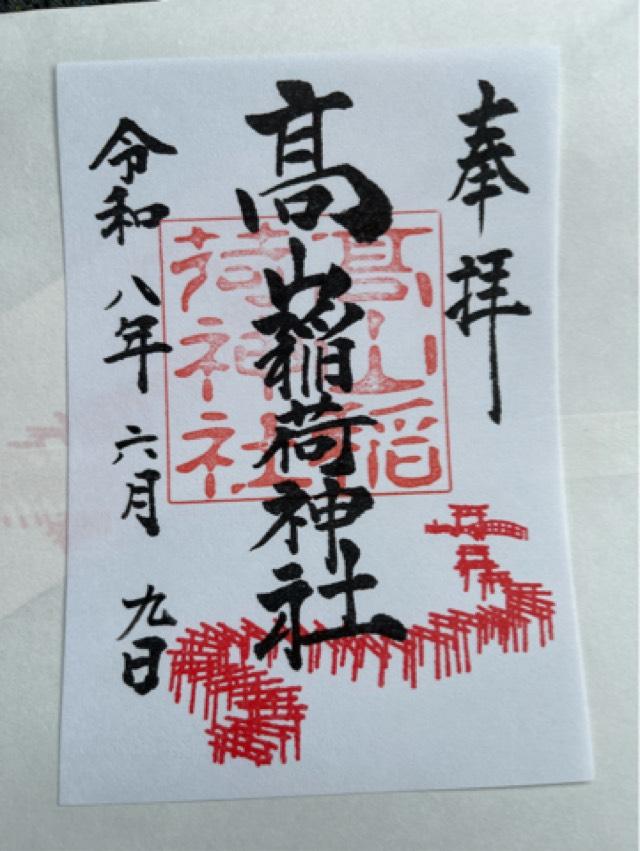 奉拝
髙山稲荷神社
髙山稲
荷神社
令和八年六月九日